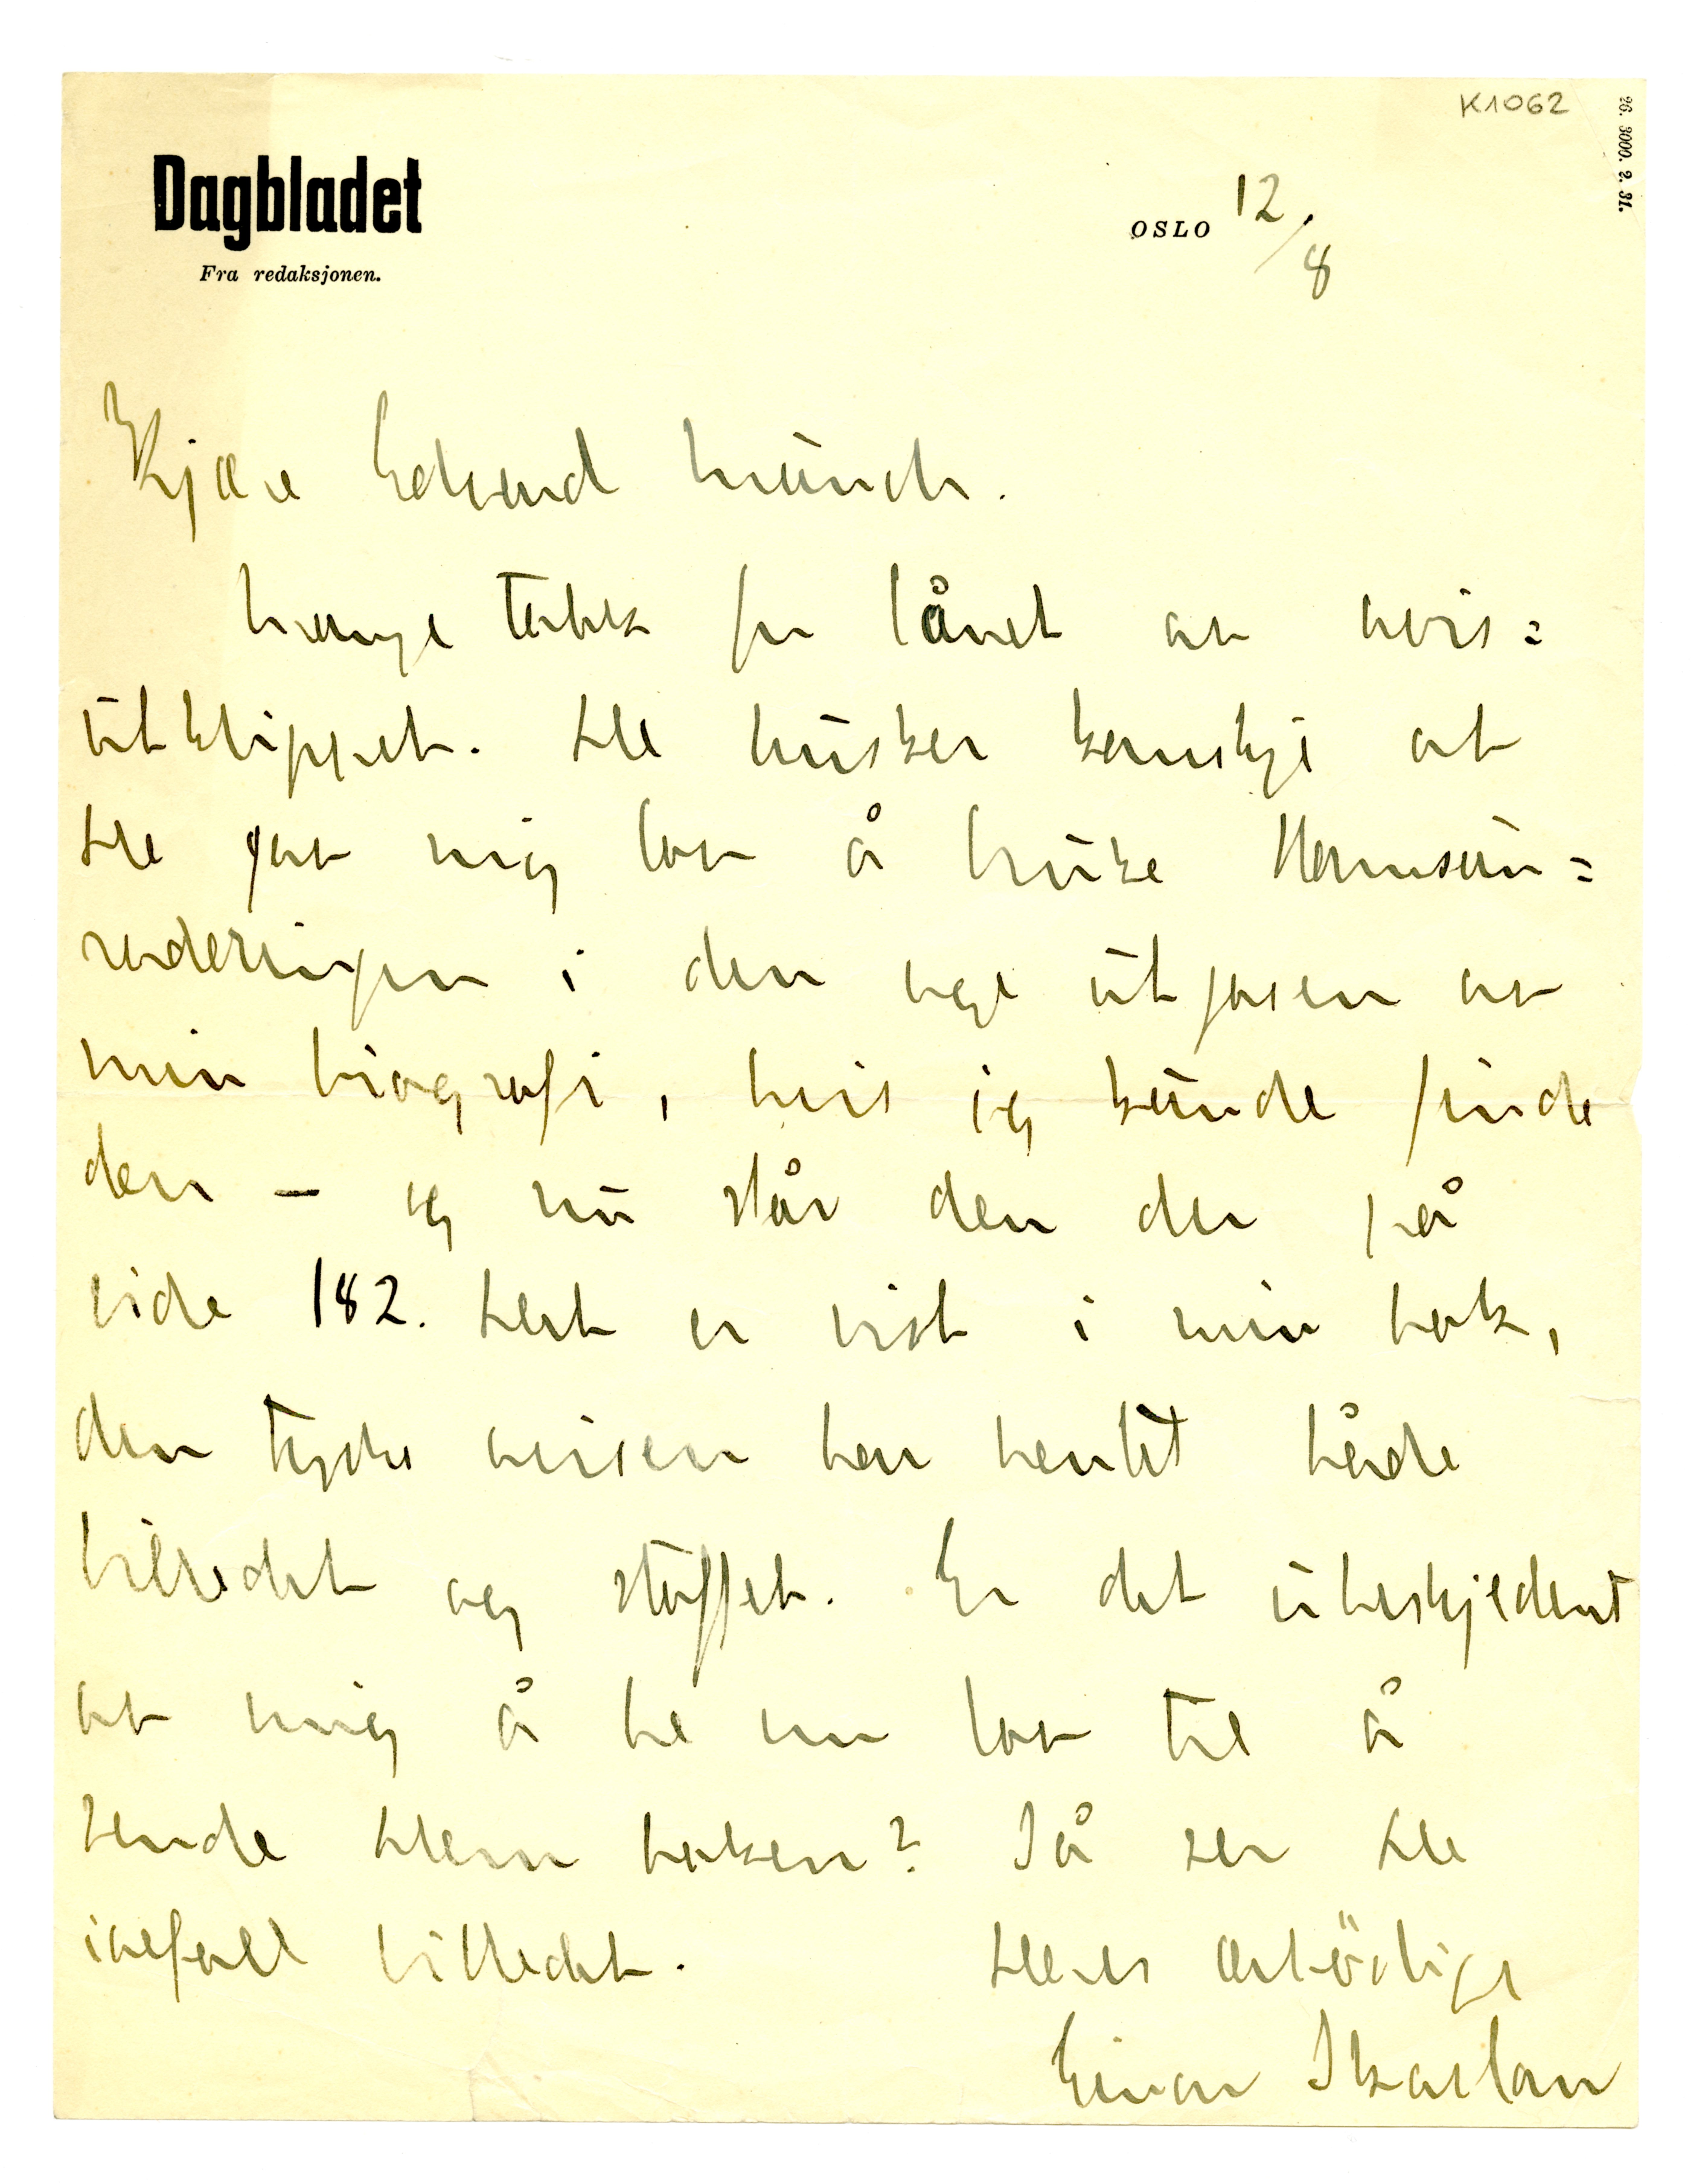 K1062
26. 3000. 2. 31.
Dagbladet
Fra redaksjonen.
OSLO 12/8
Kjære Edvard Munch.
Mange takk for lånet av avis=
utklippet. De husker kanskje at
De gav mig lov å bruke Hamsun=
raderingen i den nye utgaven av
min biografi, hvis jeg kunde finde
den – og nu står den der på
side 182. Det er vist i min bok,
den tyske avisen har hentet både
billedet og stoffet. Er det ubeskjedent
av mig å be om lov til å
sende Dem boken? Så ser De
iallefall billedet.
Deres ærbødige
Einar Skavlan